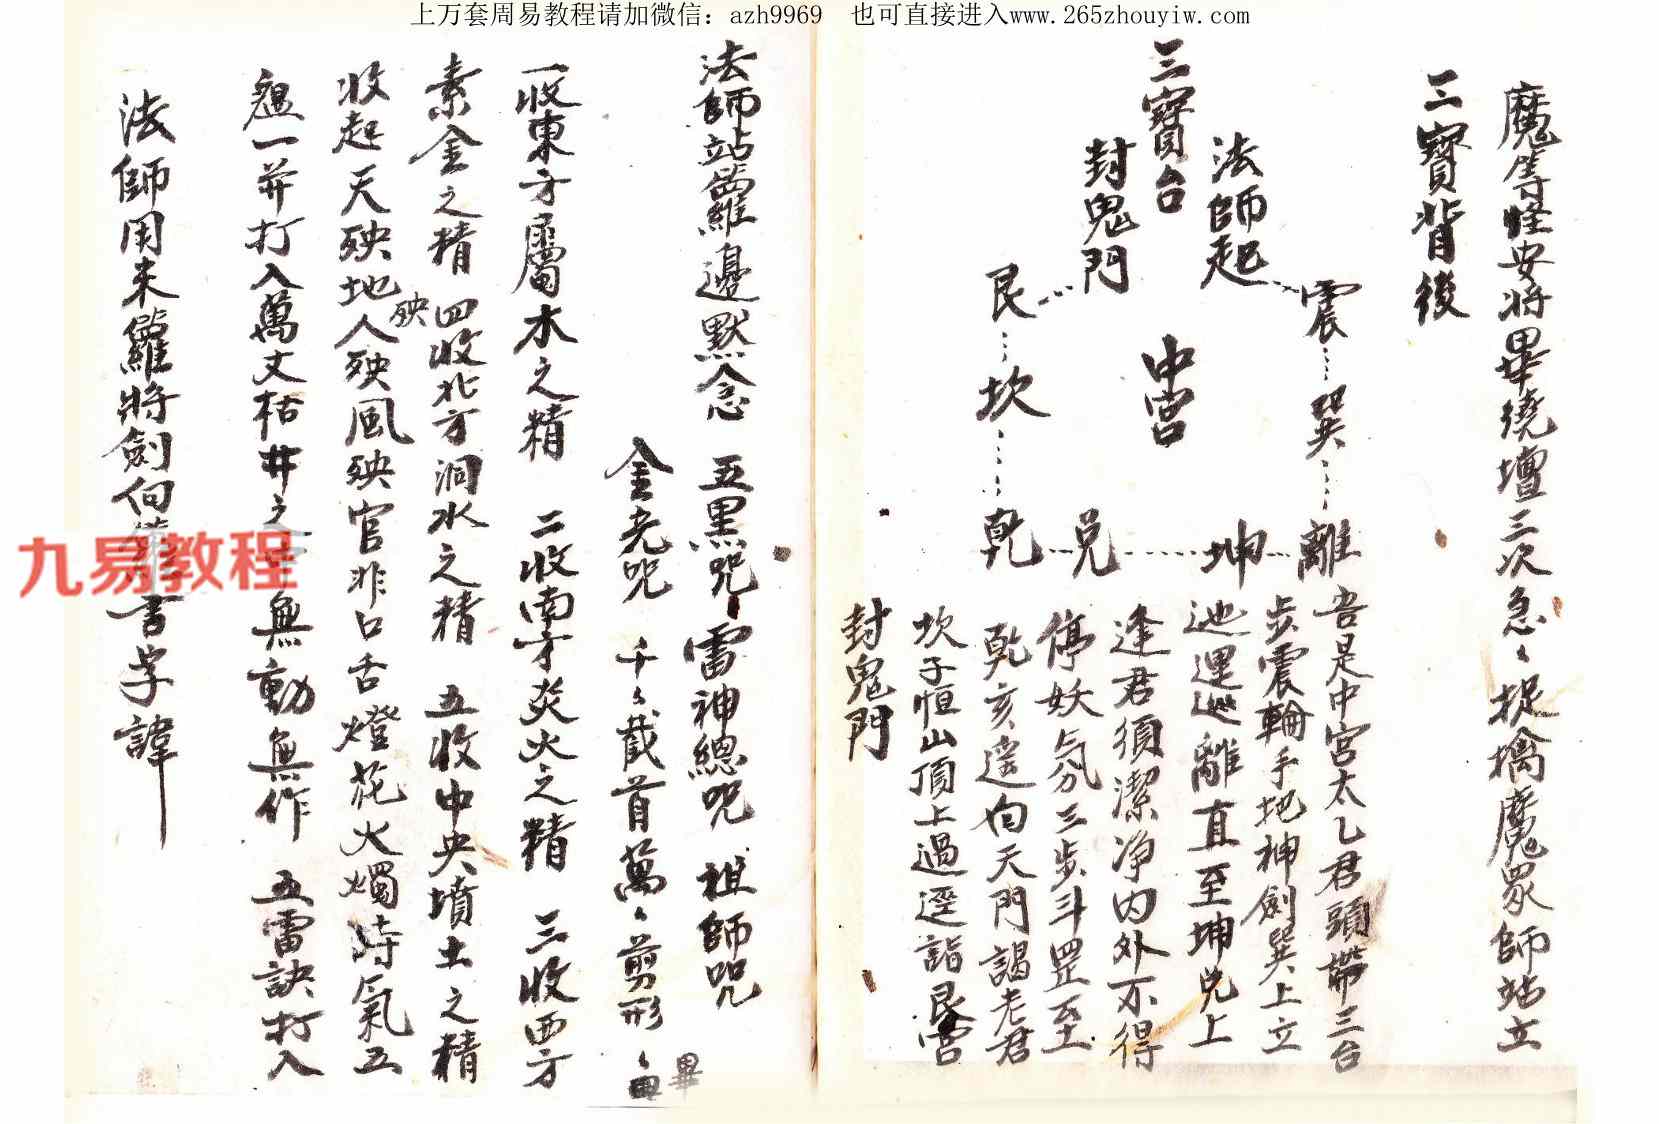 上万套周易教程请加微信：azh9969　也可直接进入www.265zhouyiw.com
魔等怪安将畢繞壇三次急々捉擒魔眾師站立
三寶背後
三寶台
法師起
封鬼門
震
巽
離
坤
兌
乾
坎
艮
中宮
吾是中宮太乙君頭帶三台
步震輪手地神劍巽上立
迆邐巡離直至坤兌上
逢君須潔净内外不得
停妖氛三步斗罡至
乾亥遥向天門謁老君
坎子恒山頂上過逕詣艮宮
封鬼門
法師站籮邊默念 五黑咒 雷神總咒 祖師咒
金光咒 千々截首萬々剪形 畢
一收東方屬木之精 二收南方炎火之精 三收西方
素金之精 四收北方洞水之精 五收中央墳土之精
收起天殃地殃人殃風殃官非口舌燈花火燭時氣五
瘟一并打入萬丈枯井之 無動無作 五雷訣打入
法師用米籮將劍向 書字諱
九易教程